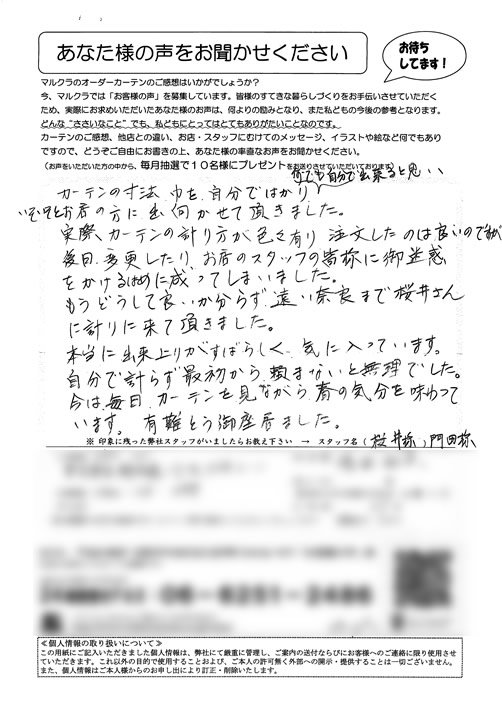 あなた様の声をお聞かせください
お待ち
してます!
マルクラのオーダーカーテンのご感想はいかがでしょうか?
今、マルクラでは「お客様の声」を募集しています。皆様のすてきな暮らしづくりをお手伝いさせていただく
ため、実際にお求めいただいたあなた様のお声は、何よりの励みとなり、また私どもの今後の参考となります。
どんな“ささいなこと”でも、私どもにとってはとてもありがたいことなのです。
カーテンのご感想、他店との違い、お店・スタッフにむけてのメッセージ、イラストや絵など何でもあり
ますので、どうぞご自由にお書きの上、あなた様の率直なお声をお聞かせください。
(お声をいただいた方の中から、毎月抽選で10名様にプレゼントをお送りさせていただいております)
何でも自分で出来ると思い、
カーテンの寸法、巾を、自分ではかり
いそいそとお店の方に出向かせて頂きました。
実際、カーテンの計り方が色々有り 注文したのは良いのですが
後日、変更したり、お店のスタッフの皆様に御迷惑
をかけるはめに成ってしまいました。
もうどうして良いか分らず、遠い奈良まで桜井さん
に計りに来て頂きました。
本当に出来上りがすばらしく、気に入っています。
自分で計らず最初から頼まないと無理でした。
今は、毎日、カーテンを見ながら、春の気分を味わって
います。有難とう御座居ました。
※ 印象に残った弊社スタッフがいましたらお教え下さい → スタッフ名(桜井様、門田様
≪個人情報の取り扱いについて≫
この用紙にご記入いただきました個人情報は、弊社にて厳重に管理し、ご案内の送付ならびにお客様へのご連絡に限り使用させ
ていただきます。これ以外の目的で使用することおよび、ご本人の許可無く外部への開示・提供することは一切ございません。
また、個人情報はご本人様からのお申し出により訂正・削除いたします。